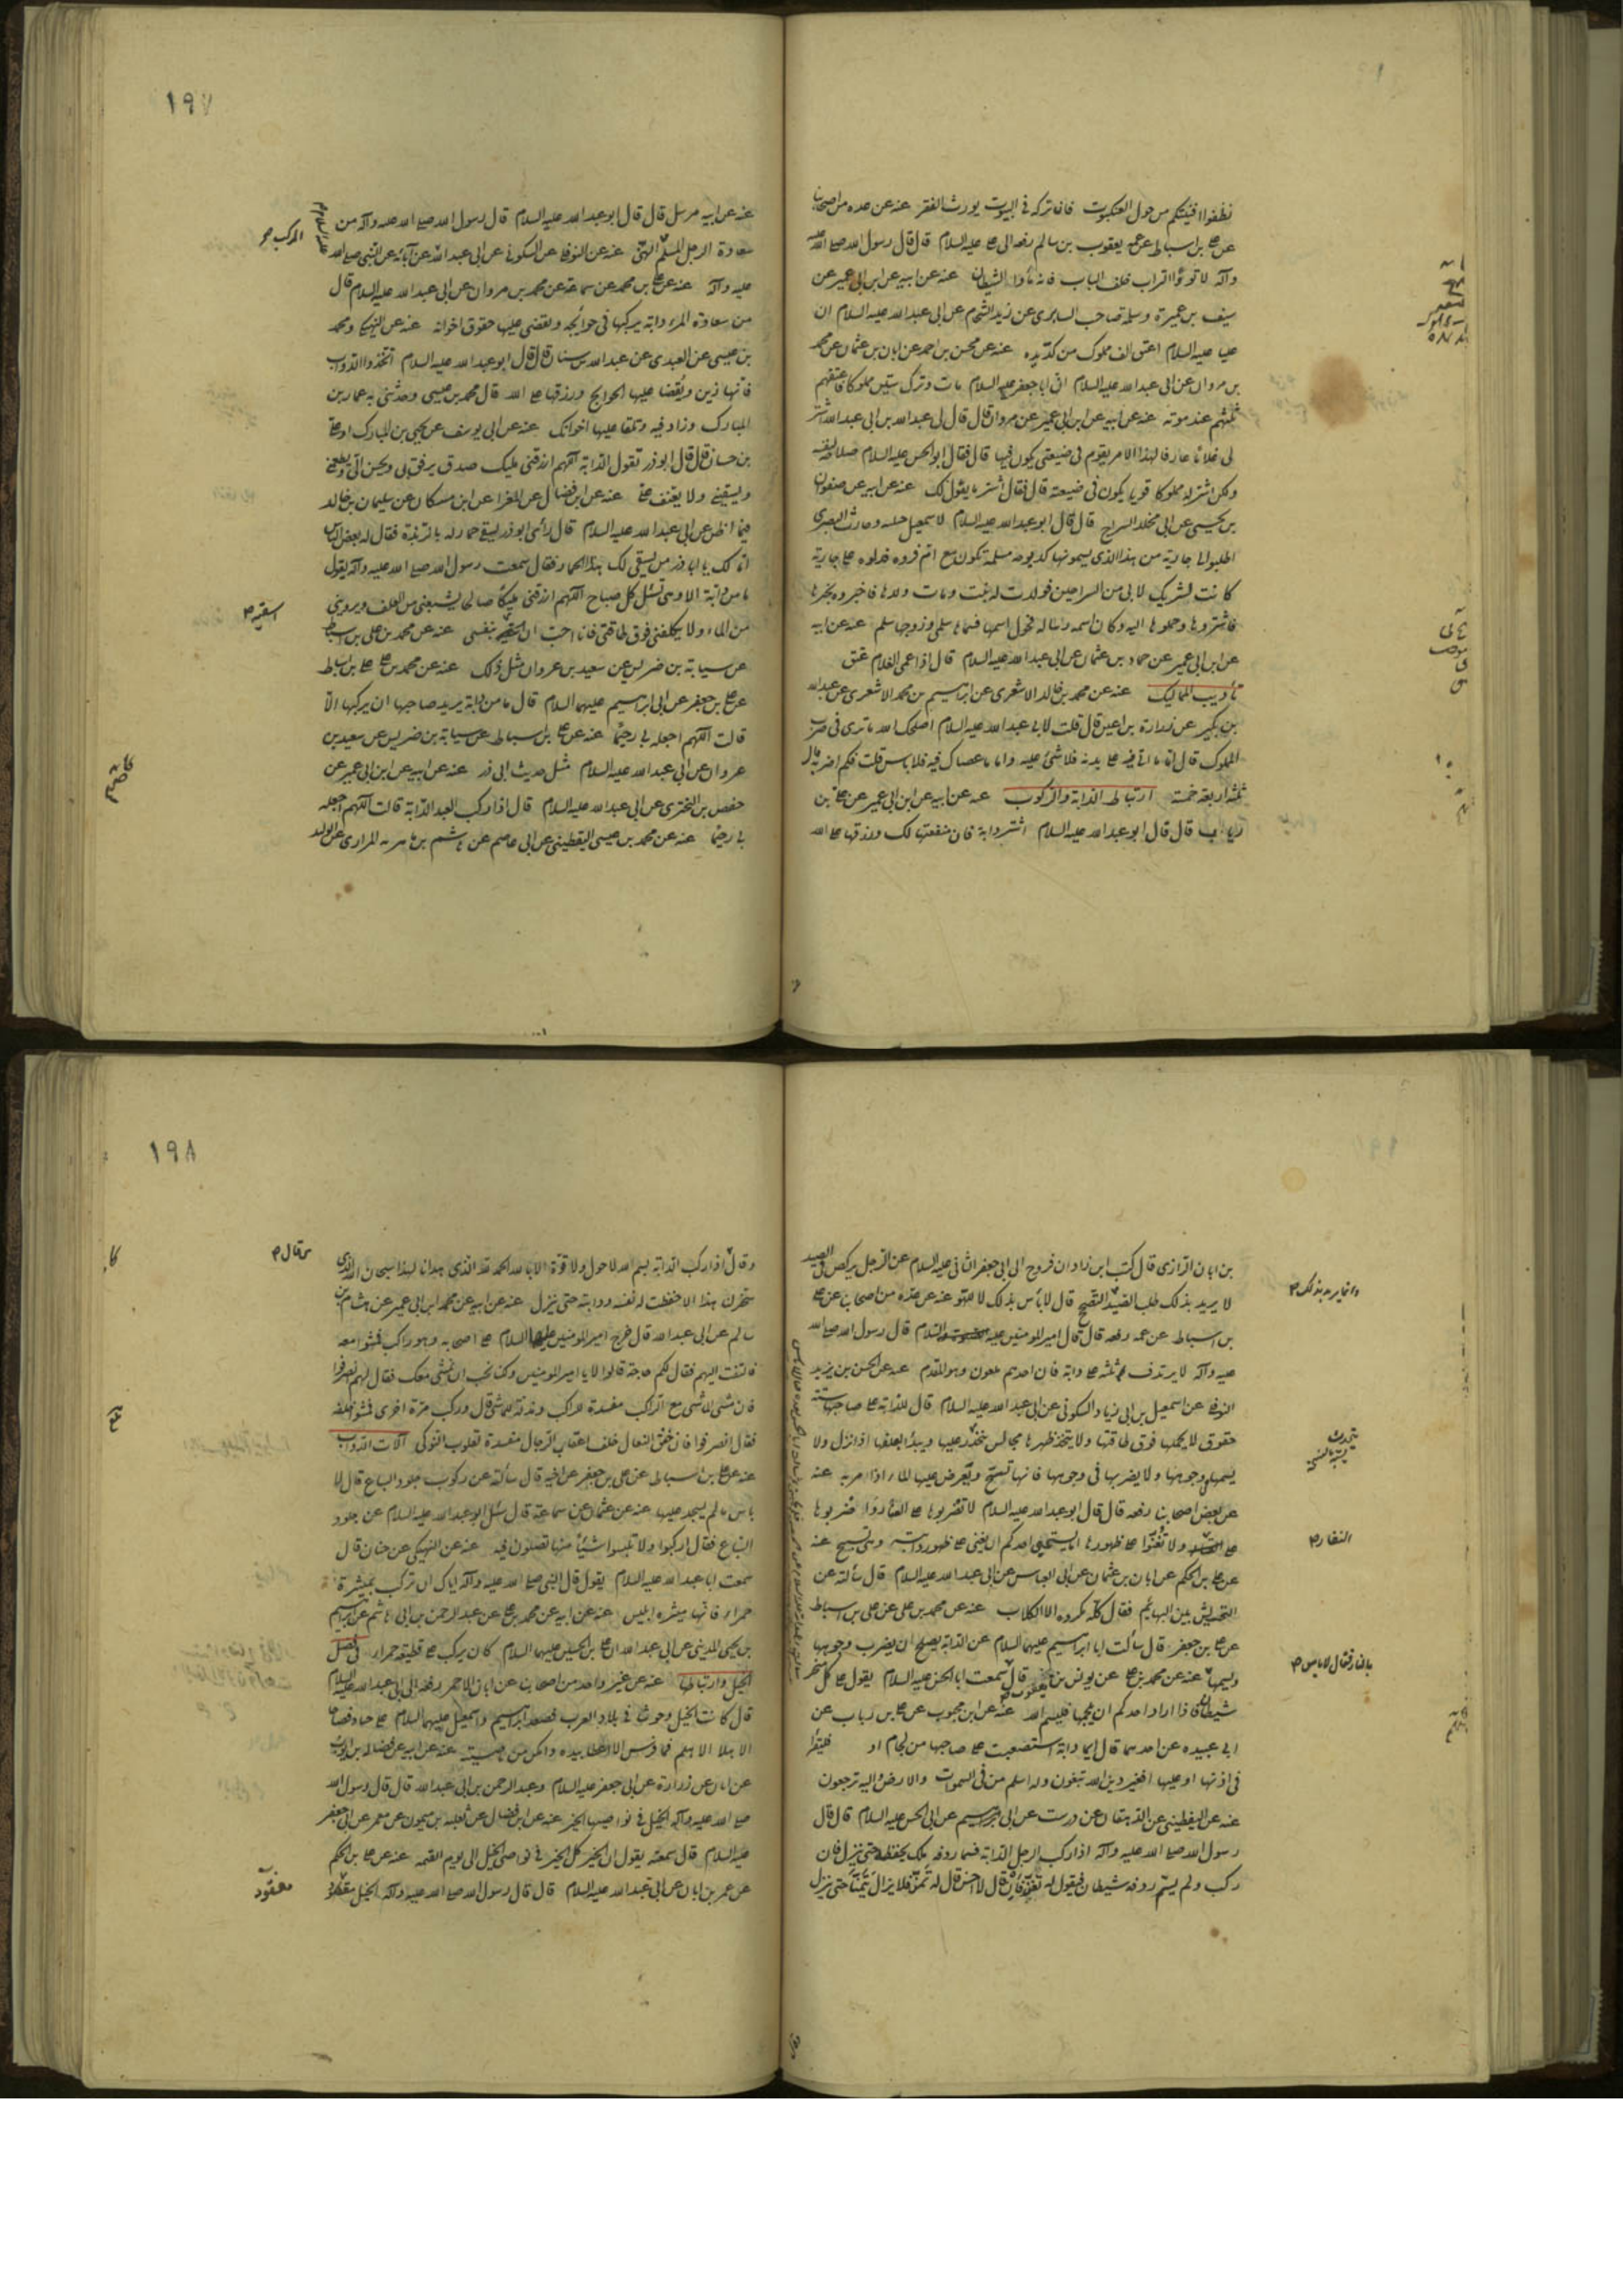 نظفوا افنيتكم من حول العنكبوت فان تركه في البيوت يورث الفقر عنه عن عده من اصحابنا
عن علي بن اسباط عن عمه يعقوب بن سالم رفعه الى علي عليه السلام قال قال رسول الله صلى الله عليه
وآله لا تووا التراب خلف الباب فانه مأوى الشيطان عنه عن ابيه عن ابن ابي عمير عن
سيف بن عميرة وسلمة صاحب السابري عن زيد الشحام عن ابي عبد الله عليه السلام ان
عليا عليه السلام اعتق الف مملوك من كد يده عنه عن محسن بن احمد عن ابان بن عثمان عن محمد
بن مروان عن ابي عبد الله عليه السلام ان ابا جعفر عليه السلام مات وترك ستين مملوكا فاعتق
ثلثهم عند موته عنه عن ابيه عن ابن ابي عمير عن مروان قال قال لي عبد الله بن ابي عبد الله اشتر
لي غلاما عارفا لهذا الامر يقوم في ضيعتي يكون فيها قال فقال ابو الحسن عليه السلام صلاحه لنفسه
ولكن اشتر له مملوكا قويا يكون في ضيعته قال فقال اشتر ما يقول لك عنه عن ابيه عن صفوان
بن يحيى عن ابي مخلد السراج قال قال ابو عبد الله عليه السلام لاسمعيل حقيبه وحارث البصري
اطلبوا لي جارية من هذا الذي يسمونها كدبوجه مسلمة تكون مع ام فروه فدلوه على جارية
كانت لشريك لابي من السراجين فولدت له بنت ومات ولدها فاخبروه بخبرها
فاشتروها وحملوها اليه وكان اسمها رساله فحول اسمها فسماها سلمى وزوجها سالم عنه عن ابيه
عن ابن ابي عمير عن حماد بن عثمان عن ابي عبد الله عليه السلام قال اذا عمي الغلام عتق
تأديب المماليك عنه عن محمد بن خالد الاشعري عن ابراهيم بن محمد الاشعري عن عبد الله
بن بكير عن زرارة بن اعين قال قلت لابي عبد الله عليه السلام اصلحك الله ما ترى في ضرب
المملوك قال ما اتى فيه على يديه فلا شئ عليه واما ما عصاك فيه فلا باس قلت فكم اضربه قال
ثلثة اربعة خمسة ارتباط الدابة والركوب عنه عن ابيه عن ابن ابي عمير عن علي بن
رياب قال قال ابو عبد الله عليه السلام اشتر دابة فان منفعتها لك ورزقها على الله
١٩٧
عنه عن ابيه مرسل قال قال ابو عبد الله عليه السلام قال رسول الله صلى الله عليه وآله من
سعادة الرجل المسلم الهنئ عنه عن النوفلي عن السكوني عن ابي عبد الله عن آبائه عن النبي صلى الله
المركب
عليه وآله عنه عن علي بن محمد عن سماعة عن محمد بن مروان عن ابي عبد الله عليه السلام قال
من سعادة المرء دابة يركبها في حوائجه ويقضي عليها حقوق اخوانه عنه عن النهيكي ومحمد
بن عيسى عن العبدي عن عبد الله بن سنان قال قال ابو عبد الله عليه السلام اتخذوا الدواب
فانها زين وتقضا عليها الحوائج ورزقها على الله قال محمد بن عيسى وحدثني به عمار بن
المبارك وزاد فيه وتلقا عليها اخوانك عنه عن ابي يوسف عن يحيى بن المبارك او علي
بن حسان قال قال ابو ذر تقول الدابة اللهم ارزقني مليك صدق يرفق بي ويحسن الي ويطعمني
ويسقيني ولا يعنف علي عنه عن ابن فضال عن المغرا عن ابن مسكان عن سليمان بن خالد
فيما اظن عن ابي عبد الله عليه السلام قال رأي ابو ذر يسقي حمارا له بالربذة فقال له بعض الناس
اما لك يا ابا ذر من يسقي لك هذا الحمار فقال سمعت رسول الله صلى الله عليه وآله يقول
ما من دابة الا وهي تسئل كل صباح اللهم ارزقني مليكا صالحا يشبعني من العلف ويرويني
من الماء ولا يكلفني فوق طاقتي فانا احب ان اسقيه بنفسي عنه عن محمد بن علي بن اسباط
اسقيه
عن سيابة بن ضريس عن سعيد بن غزوان مثل ذلك عنه عن محمد بن علي علي بن اسباط
عن علي بن جعفر عن ابي ابراهيم عليهما السلام قال ما من دابة يريد صاحبها ان يركبها الا
قالت اللهم اجعله بي رحيما عنه عن علي بن اسباط عن سيابة بن ضريس عن سعيد بن
غزوان عن ابي عبد الله عليه السلام مثل حديث ابي ذر عنه عن ابيه عن ابن ابي عمير عن
حفص بن البختري عن ابي عبد الله عليه السلام قال اذا ركب العبد الدابة قالت اللهم اجعله
بي رحيما عنه عن محمد بن عيسى اليقطيني عن ابي عاصم عن هاشم بن ماهويه المداري عن الوليد
بن ابان الرازي قال كتب ابن زاذان فروخ الى ابي جعفر الثاني عليه السلام عن الرجل يركض في الصيد
لا يريد بذلك طلب الصيد التصحح قال لا بأس بذلك لا للهو عنه عن عدة من اصحابنا عن علي
وانما يريد بذلك
بن اسباط عن عمه رفعه قال قال امير المؤمنين عليه السلام قال رسول الله صلى الله
عليه وآله لا يرتدف ثلثة على دابة فان احدهم ملعون وهو المقدم عنه عن الحسن بن يزيد
النوفلي عن اسمعيل بن ابي زياد السكوني عن ابي عبد الله عليه السلام قال للدابة على صاحبها ستة
حقوق لا يحملها فوق طاقتها ولا يتخذ ظهرها مجالس يتحدث عليها ويبدأ بعلفها اذا نزل ولا
يسمها في وجوهها ولا يضربها في وجوهها فانها تسبح ويعرض عليها الماء اذا مر به عنه
عن بعض اصحابنا رفعه قال قال ابو عبد الله عليه السلام لا تضربوها على العثار واضربوها
على ولا تغنوا على ظهورها اما يستحيي احدكم ان يغني على ظهر دابته وهي تسبح عنه
النفار
عن علي بن الحكم عن ابان بن عثمان عن ابي العباس عن ابي عبد الله عليه السلام قال سألته عن
التحريش بين البهائم فقال كله مكروه الا الكلاب عنه عن محمد بن علي عن علي بن اسباط
عن علي بن جعفر قال سألت ابا ابراهيم عليهما السلام عن الدابة يصلح ان يضرب وجوهها
ويسمها عنه عن محمد بن علي عن يونس بن يعقوب قال سمعت ابا الحسن عليه السلام يقول على كل منخر
بالنار فقال لا باس
شيطان فاذا اراد احدكم ان يلجمها فليسم الله عنه عن ابن محبوب عن علي بن رياب عن
ابي عبيده عن احدهما قال ايما دابة استصعبت على صاحبها من لجام او فليقرأ
في اذنها او عليها افغير دين الله تبغون وله اسلم من في السموات والارض اليه ترجعون
عنه عن اليقطيني عن الدهقان عن درست عن ابي ابراهيم عن ابي الحسن عليه السلام قال قال
رسول الله صلى الله عليه وآله اذا ركب الرجل الدابة فسما ردفه ملك يحفظه حتى ينزل فان
ركب ولم يسم ردفه شيطان فيقول له تغن فان قال لا احسن قال له تمن فلا يزال يتمنى حتى ينزل
١٩٨
وقال اذا ركب الدابة بسم الله لا حول ولا قوة الا بالله الحمد لله الذي هدانا لهذا سبحان الله الذي
سخر لنا هذا الا حفظت له نفسه ودابته حتى ينزل عنه عن ابيه عن محمد ابن ابي عمير عن هشام بن
سالم عن ابي عبد الله قال خرج امير المؤمنين عليه السلام على اصحابه وهو راكب فمشوا معه
فالتفت اليهم فقال لكم حاجة قالوا لا يا امير المؤمنين ولكنا نحب ان نمشي معك فقال لهم انصرفوا
فان مشي الماشي مع الراكب مفسدة للراكب ومذلة للماشي قال وركب مرة اخرى فمشوا خلفه
فقال انصرفوا فان خفق النعال خلف اعقاب الرجال مفسدة لقلوب النوكى آلات الدواب
عنه عن علي بن اسباط عن علي بن جعفر عن اخيه قال سألته عن ركوب جلود السباع قال لا
باس ما لم يسجد عليها عنه عن عثمان عن سماعة قال سئل ابو عبد الله عليه السلام عن جلود
السباع فقال اركبوا ولا تلبسوا شيئا منها تصلون فيه عنه عن النهيكي عن حنان قال
سمعت ابا عبد الله عليه السلام يقول قال النبي صلى الله عليه وآله اياك ان تركب بميثرة
حمراء فانها ميثره ابليس عنه عن ابيه عن محمد بن علي عن عبد الرحمن بن ابي هاشم عن ابراهيم
بن يحيى المديني عن ابي عبد الله ان علي بن الحسين عليهما السلام كان يركب على قطيفة حمراء فضل
الخيل وارتباطها عنه عن غير واحد من اصحابنا عن ابان الاحمر رفعه الى ابي عبد الله عليه السلام
قال كانت الخيل وحوشا في بلاد العرب فصعد ابراهيم واسمعيل عليهما السلام على جياد فصاحا
الا هلا الا هلم فما فرس الا اعطا بيده وامكن من ناصيته عنه عن ابيه عن فضالة بن ايوب
عن ابان عن زرارة عن ابي جعفر عليه السلام وعبد الرحمن بن ابي عبد الله قال قال رسول الله
صلى الله عليه وآله الخيل في نواصيها الخير عنه عن ابن فضال عن ثعلبة بن ميمون عن معمر عن ابي جعفر
عليه السلام قال سمعته يقول ان الخير كل الخير في نواصي الخيل الى يوم القيمة عنه عن علي بن الحكم
عن عمر بن ابان عن ابي عبد الله عليه السلام قال قال رسول الله صلى الله عليه وآله الخيل معقود
معقود